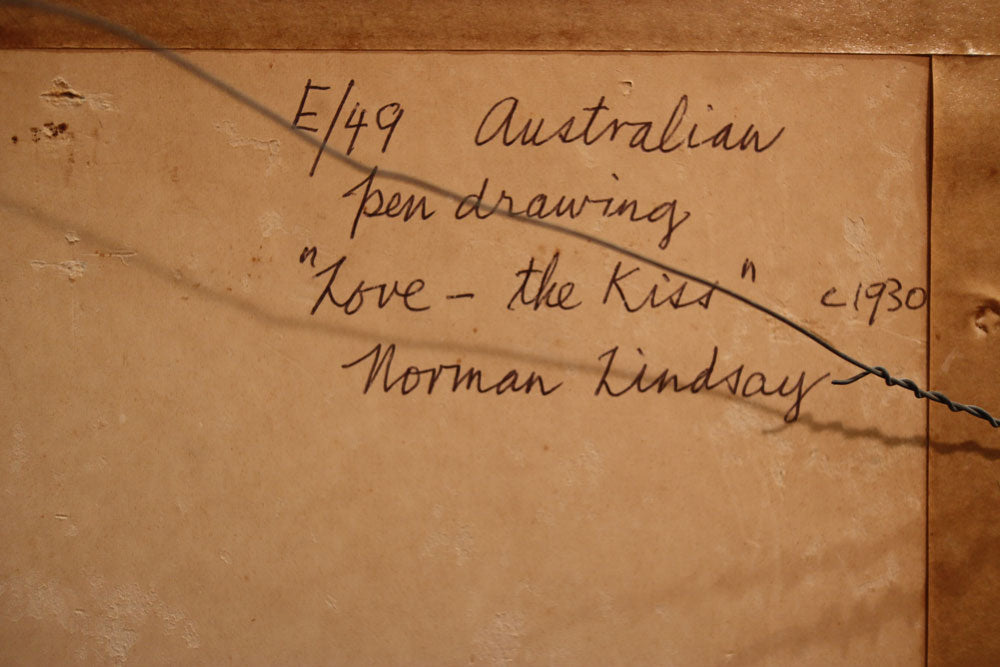 E/49 Australian
pen drawing
"Love - the Kiss" c1930
Norman Lindsay